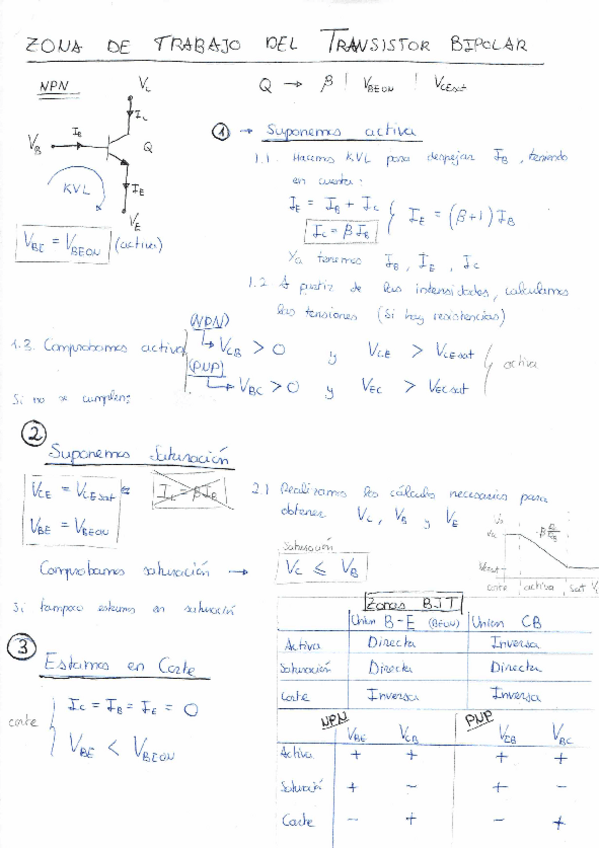 ZONA DE TRABAJO DEL TRANSISTOR BIPOLAR
NPN
Q → β | V_BEON | V_CEsat
V_C
I_C
V_B
I_B
Q
KVL
I_E
V_E
V_BE = V_BEON (activa)
① → Suponemos activa
1.1. Hacemos KVL para despejar I_B, teniendo
en cuenta:
I_E = I_B + I_C
I_C = β I_B
I_E = (β+1) I_B
Ya tenemos I_B, I_E, I_C
1.2 A partir de las intensidades, calculamos
las tensiones (Si hay resistencias)
1.3. Comprobamos activa
(NPN)
V_CB > 0 y V_CE > V_CEsat
(PNP)
V_BC > 0 y V_EC > V_ECsat
activa
Si no se cumplen:
② Suponemos Saturación
V_CE = V_CEsat
V_BE = V_BEON
I_C = β I_B
2.1 Realizamos los cálculos necesarios para
obtener V_C, V_B y V_E
Comprobamos saturación →
Saturación
V_C ≤ V_B
corte | activa | sat
Si tampoco estamos en saturación
③ Estamos en Corte
corte
I_C = I_B = I_E = 0
V_BE < V_BEON
Zonas BJT
Union B-E (BEON) Union CB
Activa Directa Inversa
Saturación Directa Directa
Corte Inversa Inversa
NPN PNP
V_BE V_CB V_EB V_BC
Activa + + + +
Saturación + - + -
Corte - + - +